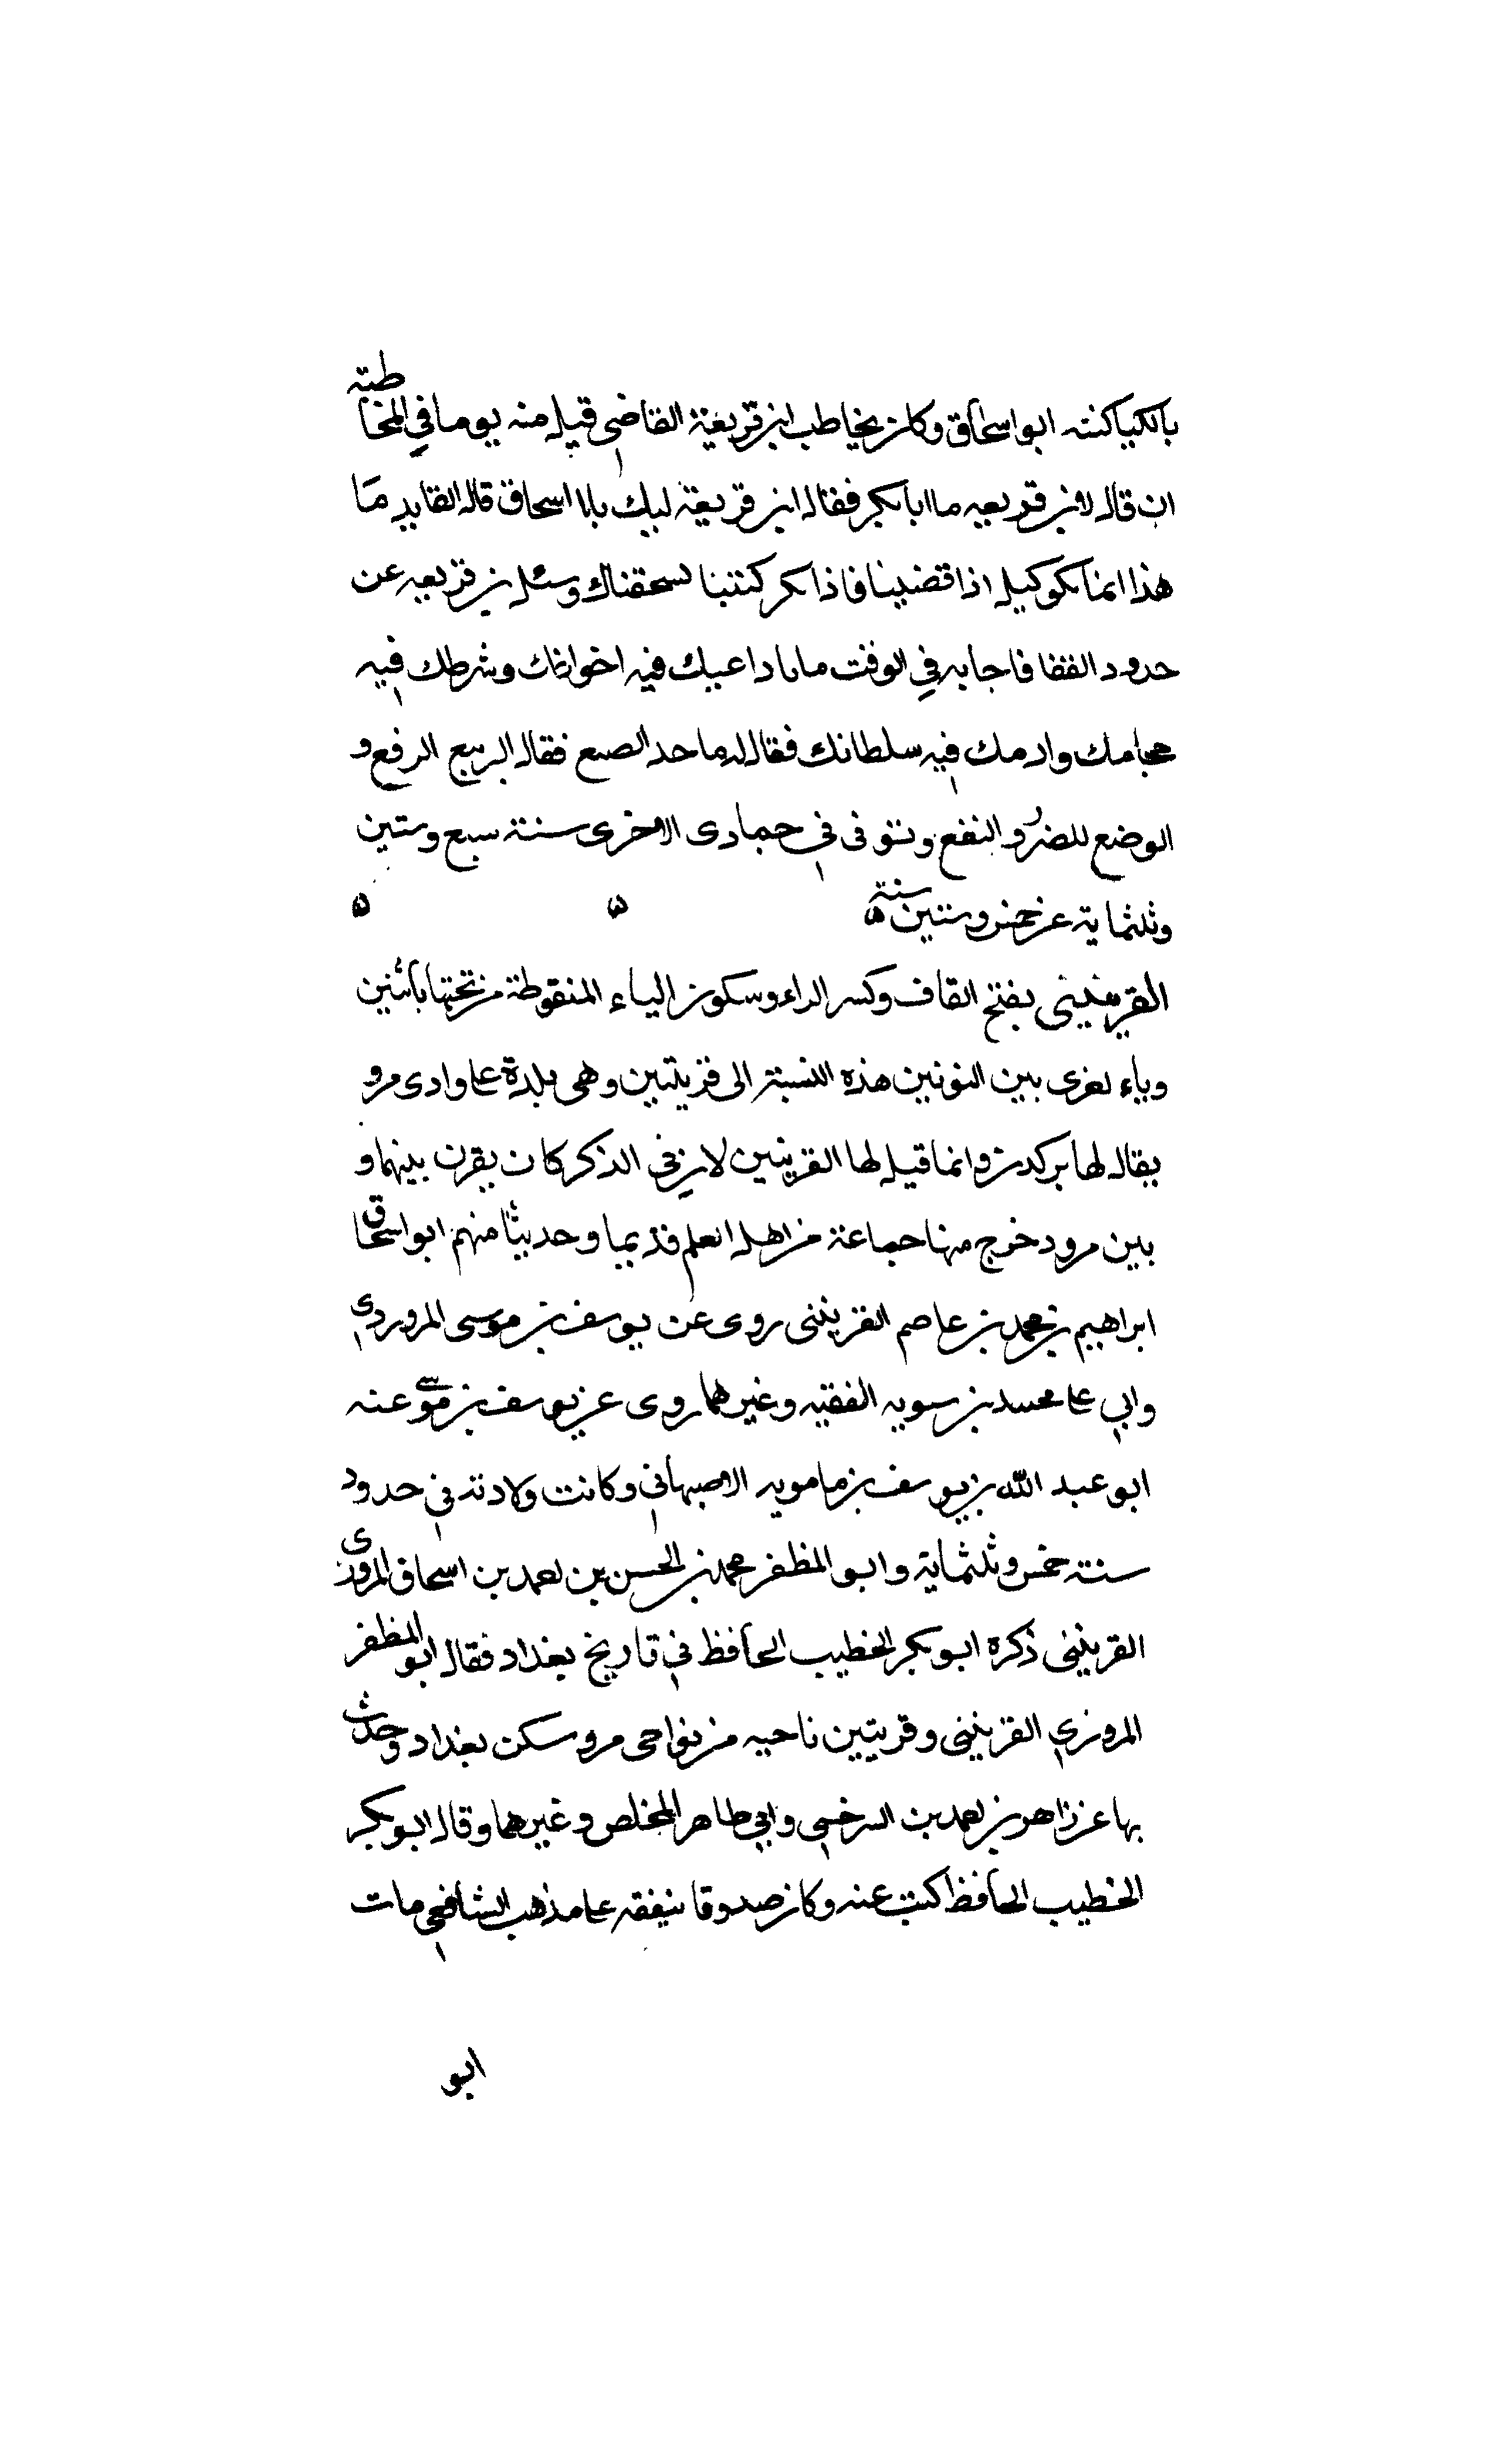 بالكيا كنته ابو اسحاق وكان يخاطب ابن قريعة القاضى قيل منه يوما في المخاطبته
ان قال لابن قريعه ماابابكر فقال ابن قريعة لبيك بابا اسحاق قال القايد مَا
هذا انما نكوكيل اذا قضيبنا فاذا بكر كنتنبا لسحقناك وسئل بن قريعه عن
حدود القفا فاجابه في الوقت ما داعبك فيه اخوانك وشرطك فيه
حجامك وادمك فيه سلطانك فقال له ما حد الصبع فقال الربيع الرفع و
الوضع للضر والنفع وتوفى في جمادى الاخرى سنة سبع وستين
وثلثماية عن خمس وستين سنة ه ه ه
القرينينى بفتح القاف وكسر الراء وسكون الياء المنقوطة من تحتها باثنين
وياء اخرى بين النونين هذه النسبة الى قرينين وهى بلدة على وادى مرو
يقال لها بركدز وانما قيل لها القرينين لان في الذكر كان يقرن بينهما و
بين مرود خرج منها جماعة من اهل العلم قديما وحديثا منهم ابو اسحاق
ابراهيم بن محمد بن عاصم القرينينى روى عن يوسف بن موسى المروردي
وابي على محمد بن سويه الفقيه وغيرهما روى عن يوسف بن موسى عنه
ابو عبد الله بن يوسف بن مامويه الاصبهاني وكانت ولادته في حدود
سنة خمس وثلثماية وابو المظفر محمد بن الحسن بن احمد بن اسحاق المروزى
القرينينى ذكره ابو بكر الخطيب الحافظ في تاريخ بغداد فقال ابو المظفر
المروزي القرينينى وقرينين ناحيه من نواحى مرو سكن بغداد وحدث
بها عن زاهر بن احمد بن السرخسي وابي طاهر المخلص وغيرهما وقال ابو بكر
الخطيب الحافظ كتبت عنه وكان صدوقا يتفقه على مذهب الشافعي مات
ابو